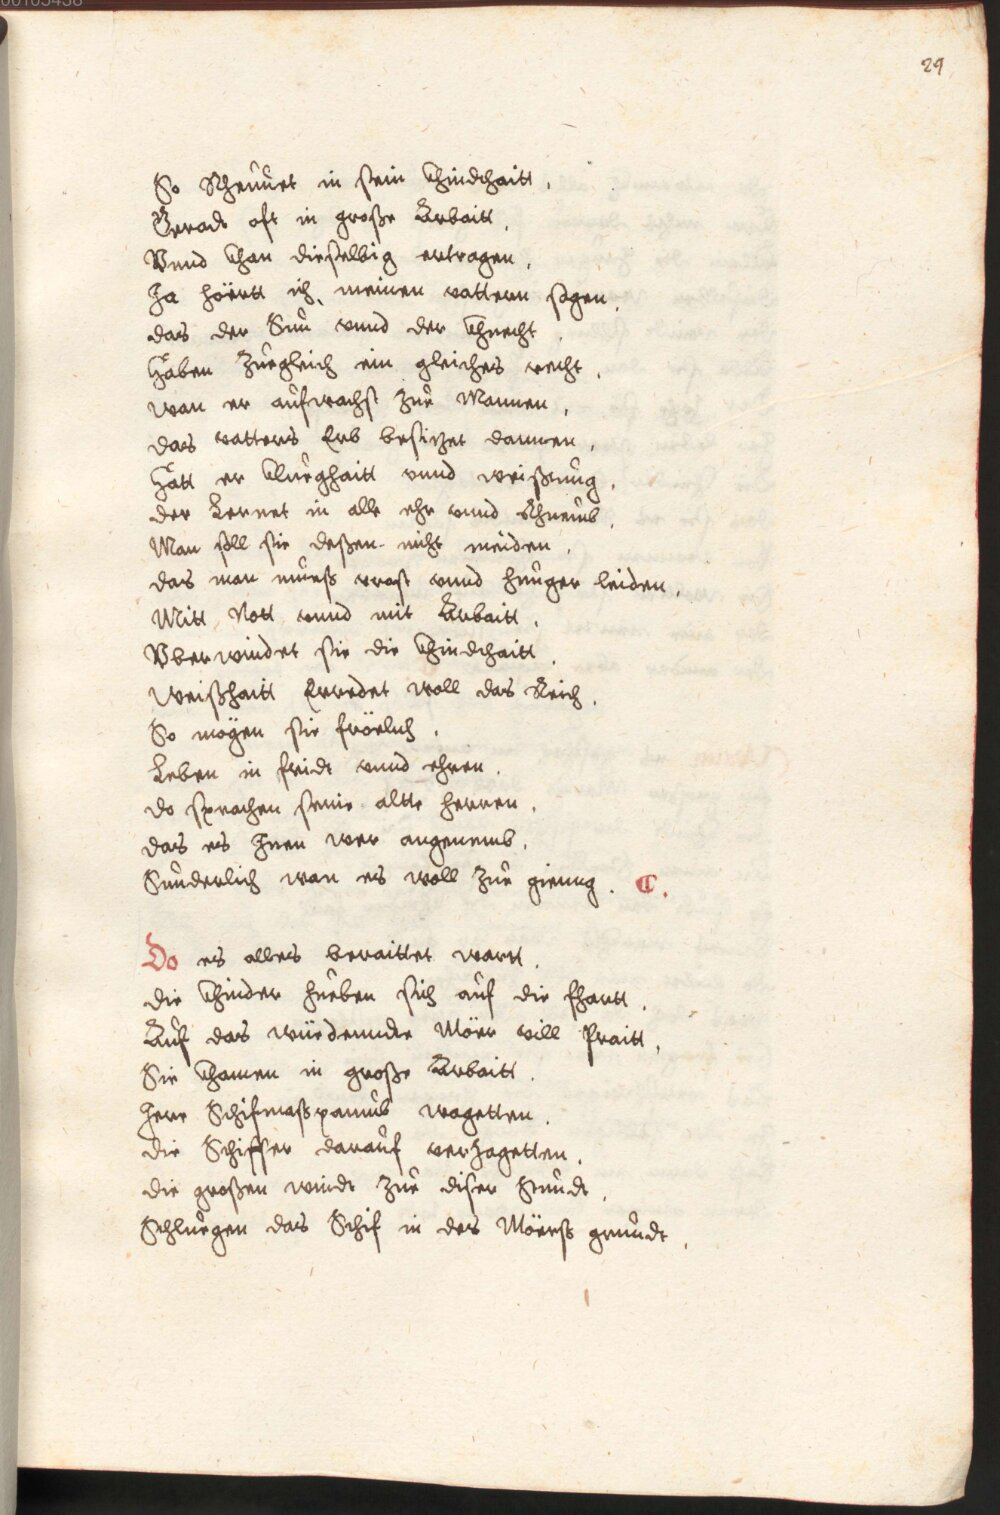 29
So Scheuuet in sein Chindhaitt.
Gerads oft in große Arbaitt.
Vnnd Chan dieselbig ertragen.
Ja hörtt ich, meinen vattern sagen.
das der Sun vnnd der Chnecht.
Haben Zuegleich ein gleiches recht.
wan er aufwachst Zue Mannen.
das vatters Erb besitzet dannen.
Hatt er Cluoghaitt vnnd weißung.
der Lernet in alle ehr vnnd
Man soll sie deßen nicht meiden.
das man mueß vrost vnnd hunger leiden.
Mitt Nott vnnd mit Arbaitt.
Vberwindet sie die Chindhaitt.
weißhaitt Erredet woll das Reich.
So mögen sie frölich.
Leben in fridt vnnd ehren.
do sprachen seine altte herren.
das es Jnen wer angenemb.
Sunderlich wan es woll Zue gienng. C.
Do es alles beraittet wartt.
die Chinder hueben sich auf die fhartt.
Auf das wüedenndte Mör vill Praitt.
Sie Chamen in große Arbaitt.
Jere Schifmaßpaumb wagetten.
die Schiffer darauf verzagetten.
die großen windt Zue diser Stundt.
Schluegen das Schif in des Mörß grundt.